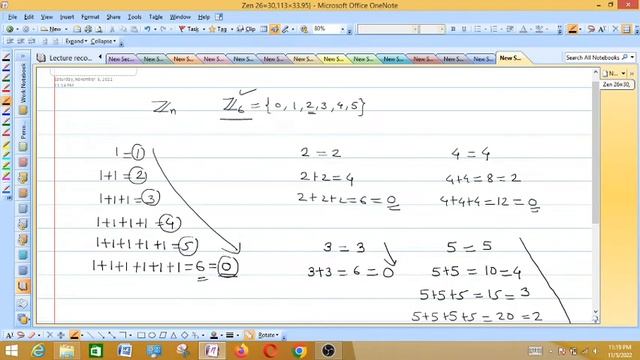 Zen 26=30,113×33.95] - Microsoft Office OneNote
File Edit View Insert
Task Tag 80%
Expand Collapse
Lecture reco... New Sec New S... Search All Notebooks
New
Zen 26=30,
Work Notebook
Saturday, November 5, 2022
ℤn ℤ6 = {0, 1, 2, 3, 4, 5}
1 = 1
1+1 = 2
1+1+1 = 3
1+1+1+1 = 4
1+1+1+1+1 = 5
1+1+1+1+1+1 = 6 = 0
2 = 2
2+2 = 4
2+2+2 = 6 = 0
4 = 4
4+4 = 8 = 2
4+4+4 = 12 = 0
3 = 3
3+3 = 6 = 0
5 = 5
5+5 = 10 = 4
5+5+5 = 15 = 3
5+5+5+5 = 20 = 2
Rotate
11:19 PM
11/5/2022